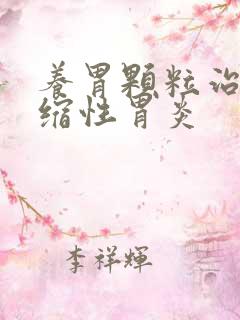 养胃顆粒治
缩性胃炎
李祥輝